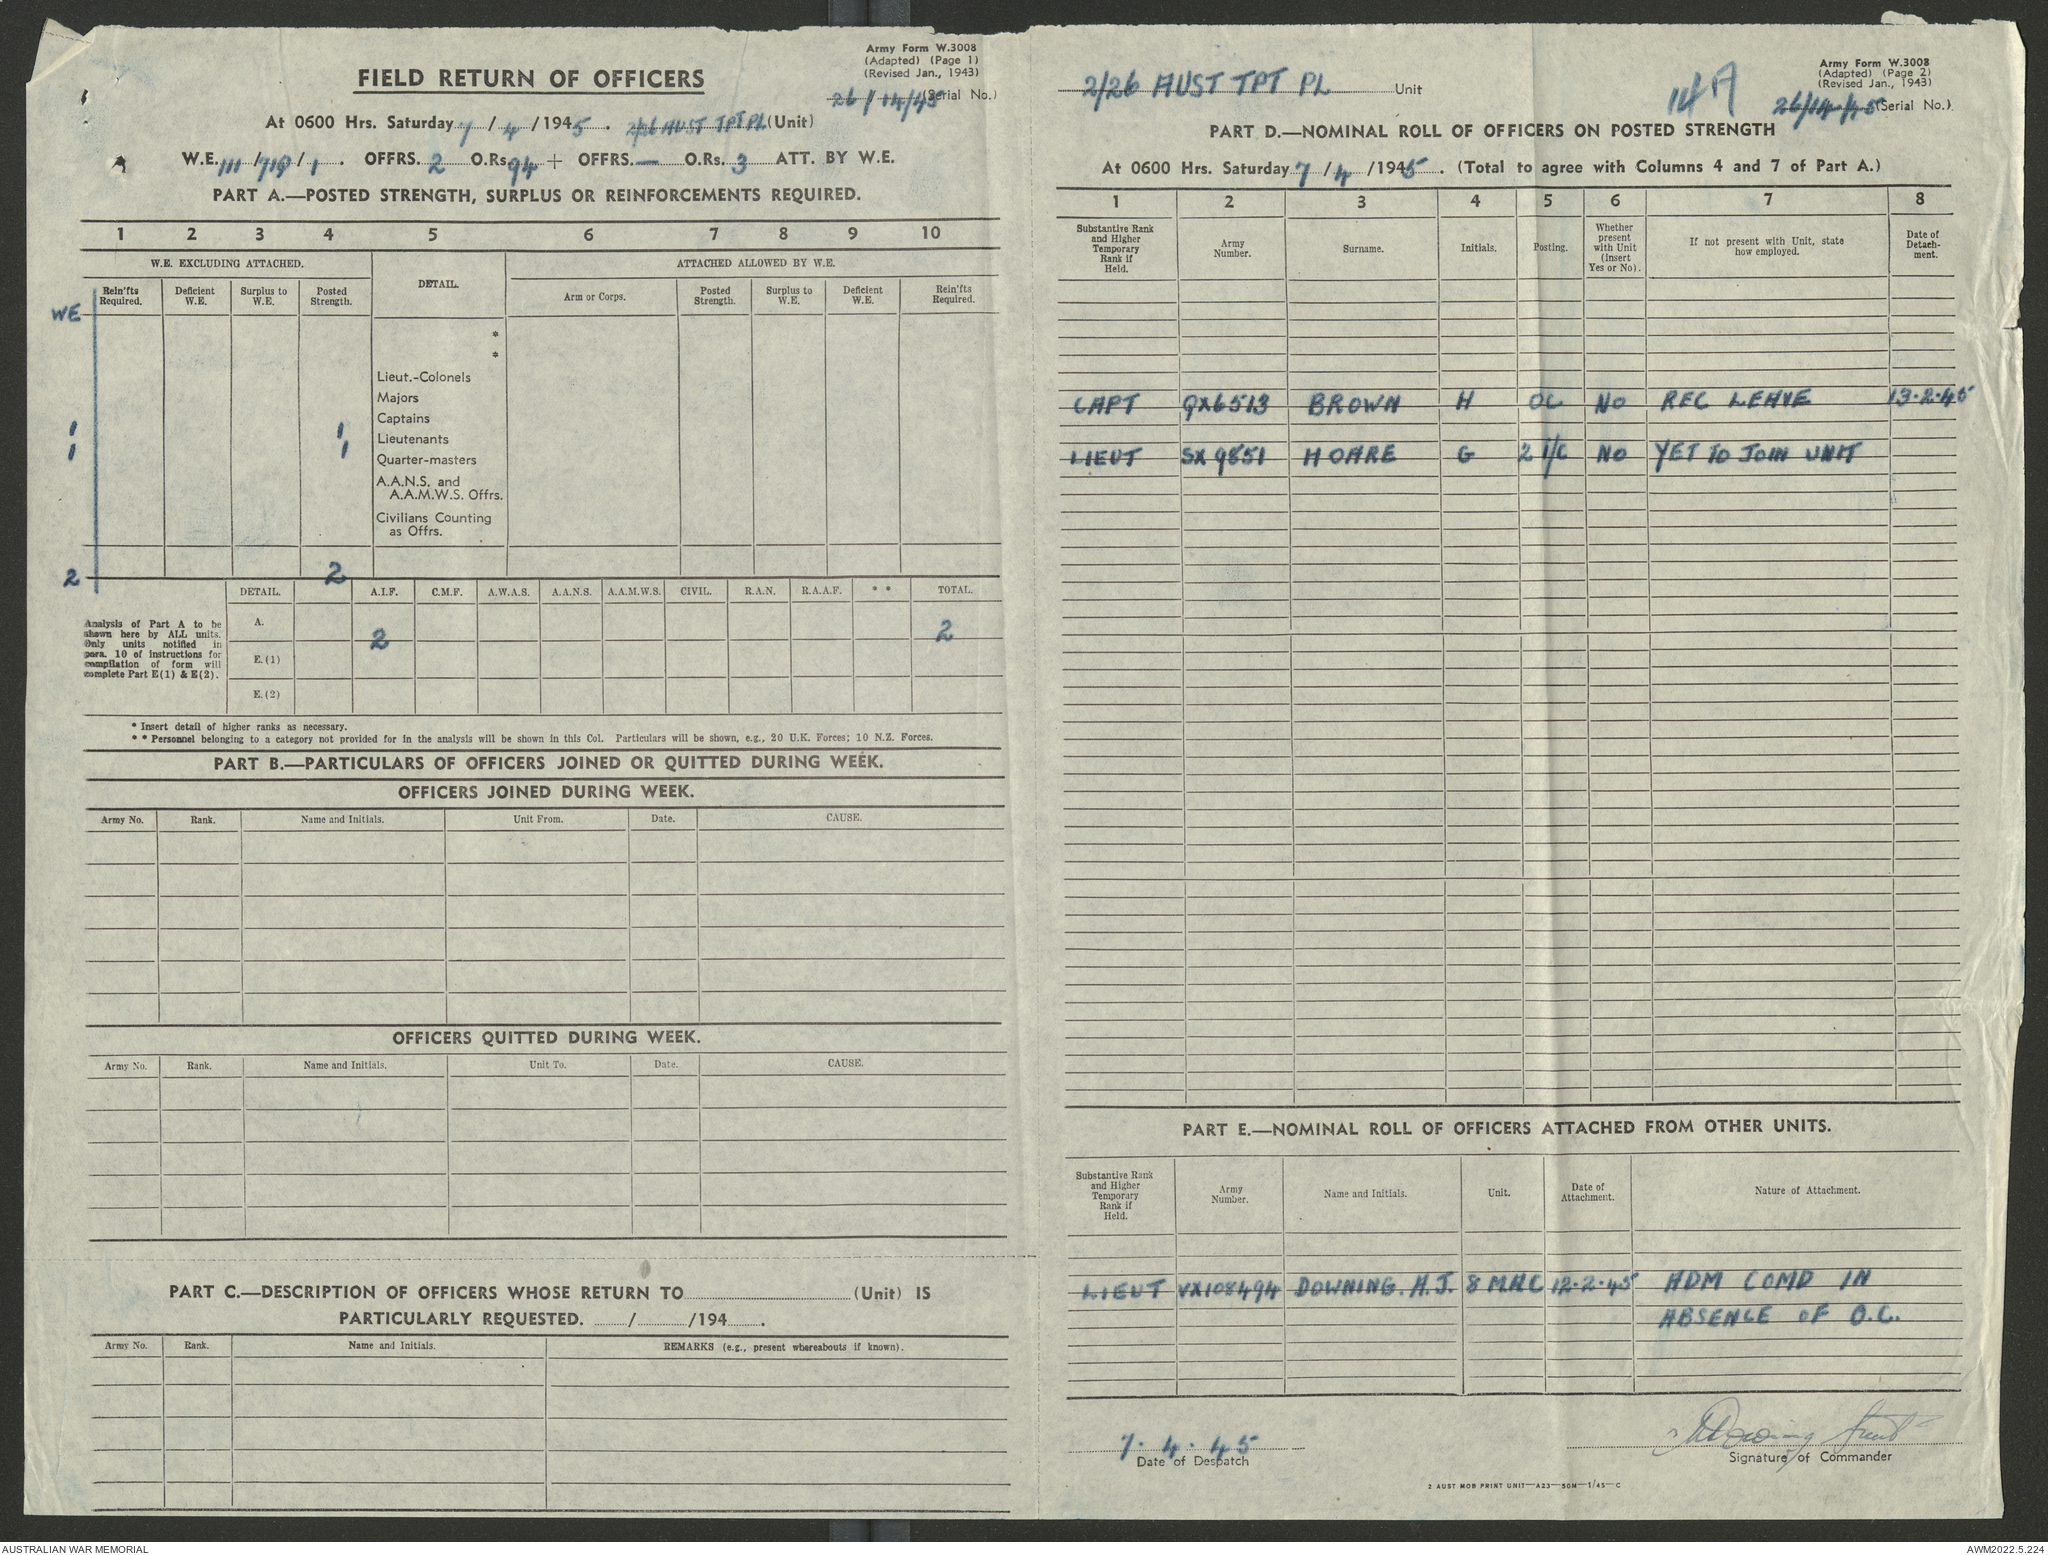 Army Form W.3008
(Adapted) (Page 1)
(Revised Jan., 1943)
FIELD RETURN OF OFFICERS
26/14/45 (Serial No.)
At 0600 Hrs. Saturday 7/4/1945. 2/26 AUST TPT PL (Unit)
W.E. 111/719/1. OFFRS. 2 O.Rs. 94 + OFFRS. — O.Rs. 3 ATT. BY W.E.
PART A.—POSTED STRENGTH, SURPLUS OR REINFORCEMENTS REQUIRED.
1 2 3 4 5 6 7 8 9 10
W.E. EXCLUDING ATTACHED. DETAIL. ATTACHED ALLOWED BY W.E.
Rein'fts Required. Deficient W.E. Surplus to W.E. Posted Strength. Arm or Corps. Posted Strength. Surplus to W.E. Deficient W.E. Rein'fts Required.
WE
*
*
Lieut.-Colonels
Majors
Captains
1 1 Lieutenants
1 1 Quarter-masters
A.A.N.S. and
A.A.M.W.S. Offrs.
Civilians Counting
as Offrs.
2 2
DETAIL. A.I.F. C.M.F. A.W.A.S. A.A.N.S. A.A.M.W.S. CIVIL. R.A.N. R.A.A.F. * * TOTAL.
Analysis of Part A to be
shown here by ALL units.
Only units notified in
para. 10 of instructions for
compilation of form will
complete Part E(1) & E(2).
A. 2 2
E.(1)
E.(2)
* Insert detail of higher ranks as necessary.
* * Personnel belonging to a category not provided for in the analysis will be shown in this Col. Particulars will be shown, e.g., 20 U.K. Forces; 10 N.Z. Forces.
PART B.—PARTICULARS OF OFFICERS JOINED OR QUITTED DURING WEEK.
OFFICERS JOINED DURING WEEK.
Army No. Rank. Name and Initials. Unit From. Date. CAUSE.
OFFICERS QUITTED DURING WEEK.
Army No. Rank. Name and Initials. Unit To. Date. CAUSE.
PART C.—DESCRIPTION OF OFFICERS WHOSE RETURN TO (Unit) IS
PARTICULARLY REQUESTED. / /194 .
Army No. Rank. Name and Initials. REMARKS (e.g., present whereabouts if known).
Army Form W.3008
(Adapted) (Page 2)
(Revised Jan., 1943)
2/26 AUST TPT PL Unit
14A
26/14/45 (Serial No.)
PART D.—NOMINAL ROLL OF OFFICERS ON POSTED STRENGTH
At 0600 Hrs. Saturday 7/4/1945. (Total to agree with Columns 4 and 7 of Part A.)
1 2 3 4 5 6 7 8
Substantive Rank and Higher Temporary Rank if Held. Army Number. Surname. Initials. Posting. Whether present with Unit (Insert Yes or No). If not present with Unit, state how employed. Date of Detachment.
CAPT QX6513 BROWN H OC NO REC LEAVE 13.2.45
LIEUT SX9851 HOARE G 2 I/C NO YET TO JOIN UNIT
PART E.—NOMINAL ROLL OF OFFICERS ATTACHED FROM OTHER UNITS.
Substantive Rank and Higher Temporary Rank if Held. Army Number. Name and Initials. Unit. Date of Attachment. Nature of Attachment.
LIEUT VX108494 DOWNING. H.J. 8 M.A.C 12.2.45 ADM COMD IN
ABSENCE OF O.C.
7.4.45
Date of Despatch
Downing Lieut
Signature of Commander
2 AUST MOB PRINT UNIT—A23—50M—1/45—C
AUSTRALIAN WAR MEMORIAL
AWM2022.5.224